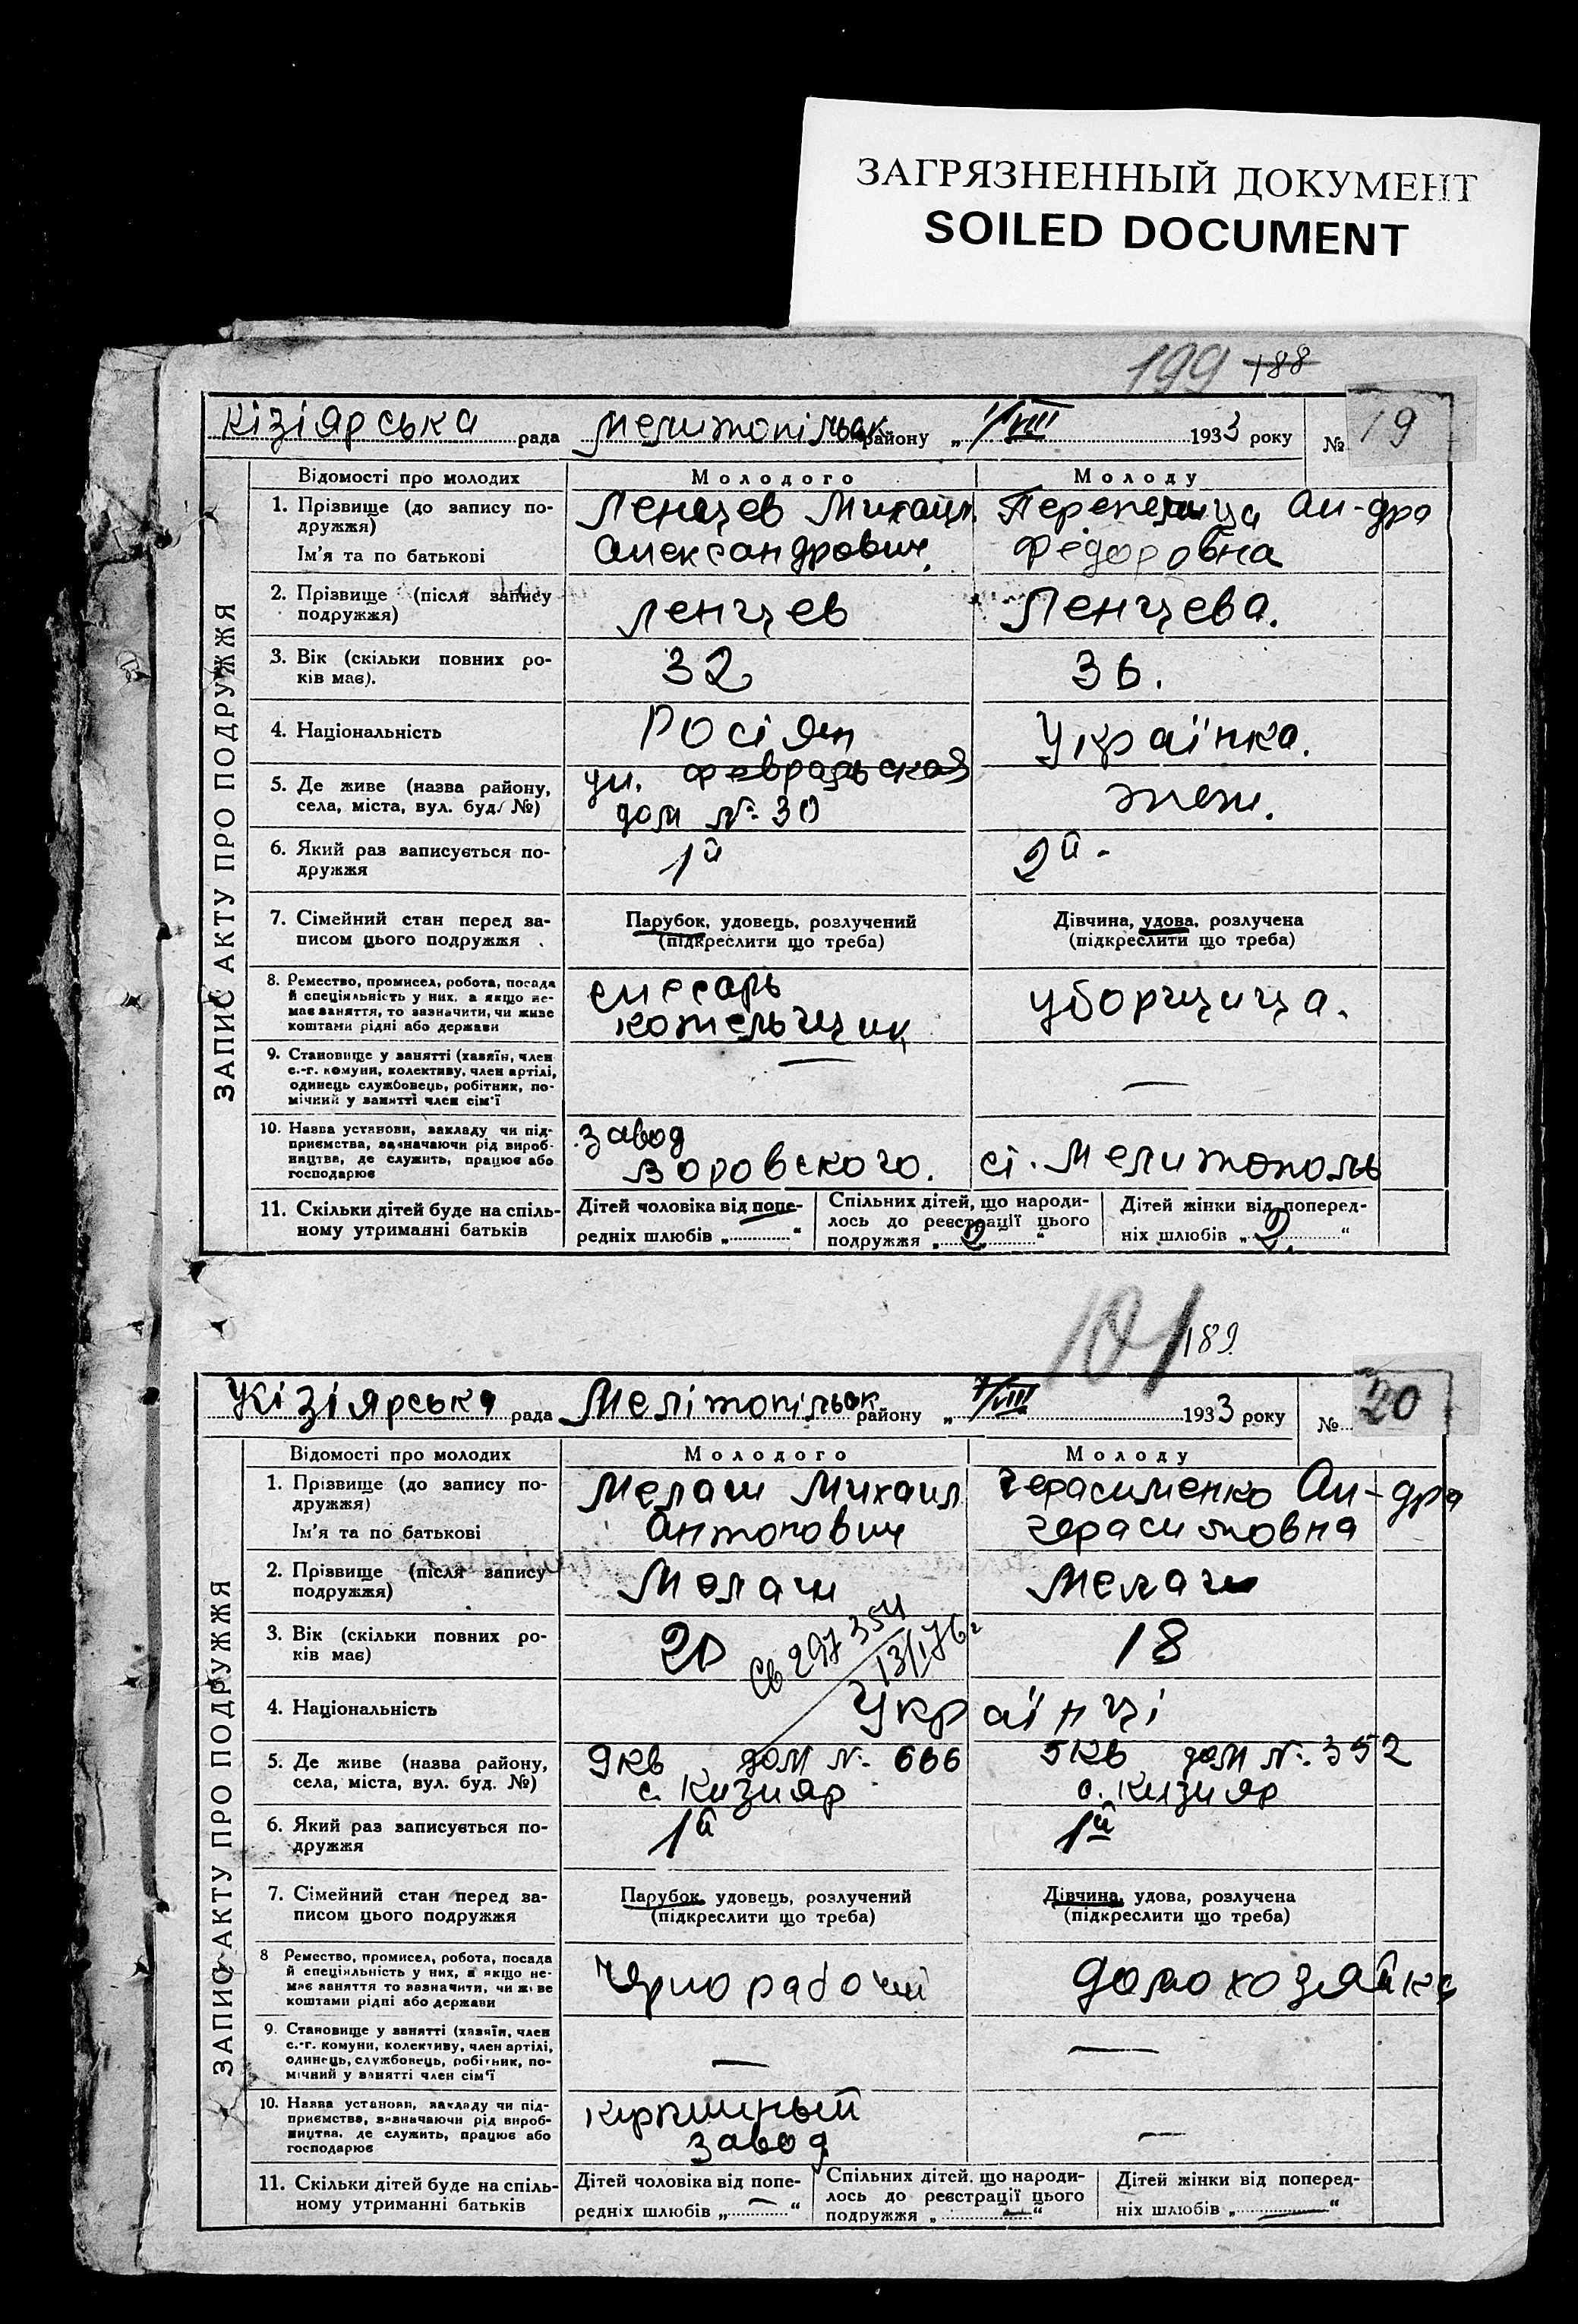 ЗАГРЯЗНЕННЫЙ ДОКУМЕНТ
SOILED DOCUMENT
199 188
Кізіярська рада Мелитопільськ району „ 1/VIII 1933 року № 19
ЗАПИС АКТУ ПРО ПОДРУЖЖЯ
Відомості про молодих Молодого Молоду
1. Прізвище (до запису по- Ленцев Михаил Перепелица Ал-дра
дружжя)
Ім'я та по батькові Александрович. Федоровна
2. Прізвище (після запису Ленцев Ленцева.
подружжя)
3. Вік (скільки повних ро- 32 36.
ків має).
4. Національність Росіян Українка.
5. Де живе (назва району, ул. Февральская тож.
села, міста, вул. буд. №) дом № 30
6. Який раз записується по- 1й 2й.
дружжя
7. Сімейний стан перед за- Парубок, удовець, розлучений Дівчина, удова, розлучена
писом цього подружжя (підкреслити що треба) (підкреслити що треба)
8. Ремество, промисел, робота, посада слесарь уборщица.
й спеціяльність у них, а якщо не-
має заняття, то зазначити, чи живе котельщик
коштами рідні або держави
9. Становище у занятті (хазяїн, член — —
с.-г. комуни, колективу, член артілі,
одинець службовець, робітник, по-
мічний у занятті член сім'ї
10. Назва установи, закладу чи під- завод
приємства, зазначаючи рід вироб- Воровского. ст. Мелитополь
ництва, де служить, працює або
господарює
11. Скільки дітей буде на спіль- Дітей чоловіка від попе- Спільних дітей, що народи- Дітей жінки від поперед-
ному утриманні батьків редніх шлюбів „ “ лось до реєстрації цього ніх шлюбів „ 2. “
подружжя „ 2 “
101 189
Кізіярська рада Мелітопільськ району „ 7/VIII 1933 року № 20
ЗАПИС АКТУ ПРО ПОДРУЖЖЯ
Відомості про молодих Молодого Молоду
1. Прізвище (до запису по- Мелаш Михаил Герасименко Ал-дра
дружжя)
Ім'я та по батькові Антонович Герасимовна
2. Прізвище (після запису Мелаш Мелаш
подружжя)
3. Вік (скільки повних ро- 20 18
ків має)
Св 297 354
13/I 76г
4. Національність Українці
5. Де живе (назва району, 9кв дом № 666 5кв дом № 352
села, міста, вул. буд. №) с. Кизияр с. Кизияр
6. Який раз записується по- 1й 1й
дружжя
7. Сімейний стан перед за- Парубок, удовець, розлучений Дівчина, удова, розлучена
писом цього подружжя (підкреслити що треба) (підкреслити що треба)
8 Ремество, промисел, робота, посада чернорабочий домохозяйка
й спеціяльність у них, а якщо не-
має заняття то зазначити, чи живе
коштами рідні або держави
9. Становище у занятті (хазяїн, член — —
с.-г. комуни, колективу, член артілі,
одинець, службовець, робітник, по-
мічний у занятті член сім'ї
10. Назва установи, закладу чи під- кирпичный —
приємства, зазначаючи рід вироб- завод
ництва, де служить, працює або
господарює
11. Скільки дітей буде на спіль- Дітей чоловіка від попе- Спільних дітей, що народи- Дітей жінки від поперед-
ному утриманні батьків редніх шлюбів „ — “ лось до реєстрації цього ніх шлюбів „ — “
подружжя „ — “